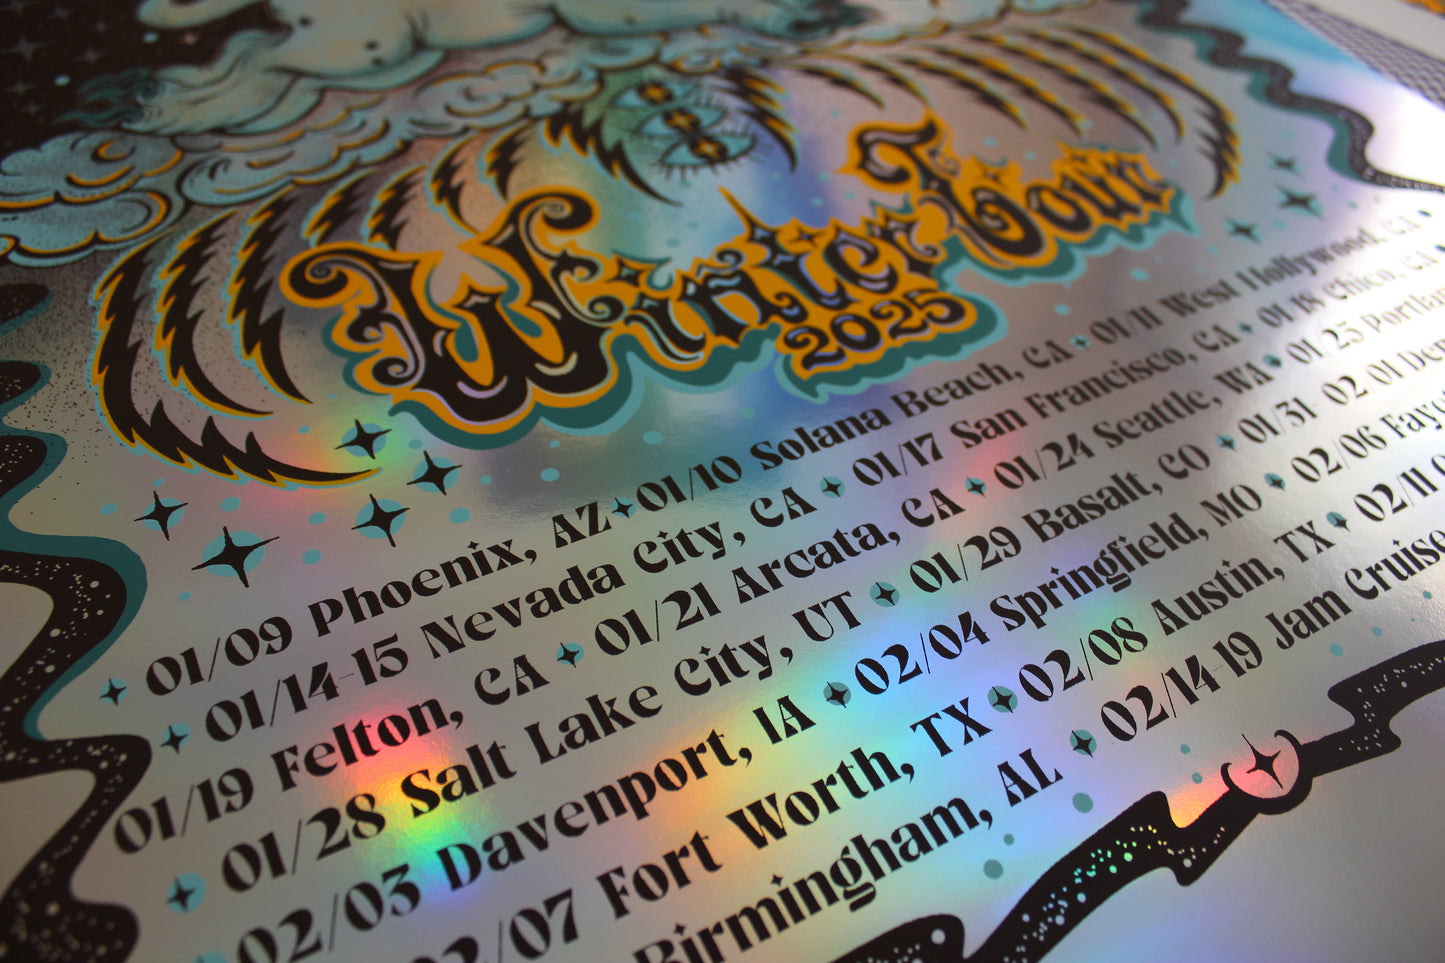 Winter Tour
2025
01/09 Phoenix, AZ 01/10 Solana Beach, CA 01/11 West Hollywood, CA
01/14-15 Nevada City, CA 01/17 San Francisco, CA 01/18 Chico, CA
01/19 Felton, CA 01/21 Arcata, CA 01/24 Seattle, WA 01/25
01/28 Salt Lake City, UT 01/29 Basalt, CO 01/31 02/01
02/03 Davenport, IA 02/04 Springfield, MO 02/06
02/07 Fort Worth, TX 02/08 Austin, TX 02/11
Birmingham, AL 02/14-19 Jam Cruise